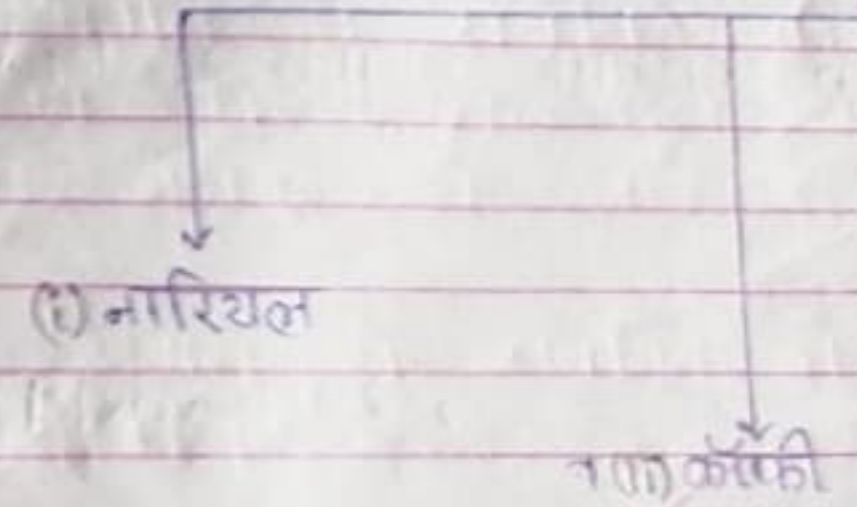 (i) नारियल
(ii) कॉफी